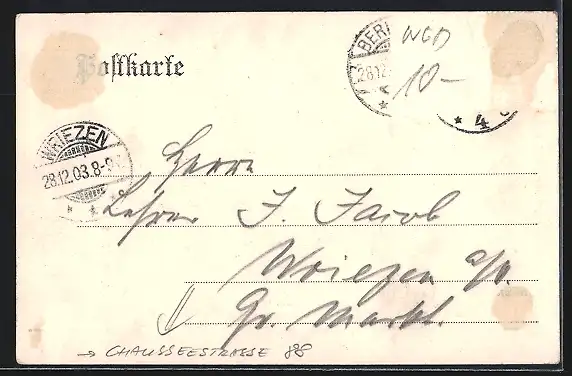 Postkarte
BERL
28.12.
WGD
10-
* 4
WRIEZEN
28.12.03.8-9
Herrn
Lehrer J. Jacob
Wriezen a/o.
Gr. Markt.
→ CHAUSSEESTRASSE 88